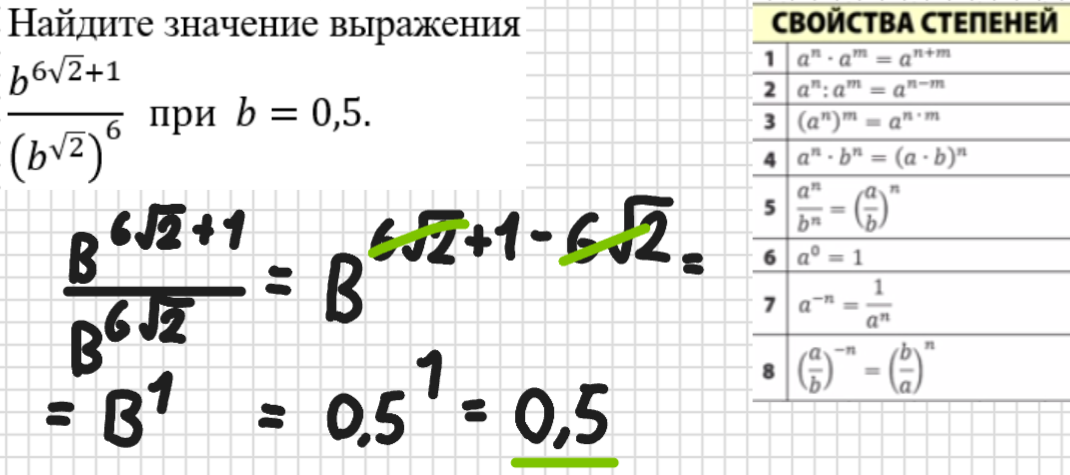 Найдите значение выражения
b^{6√2+1} / (b^{√2})^6 при b = 0,5.
B^{6√2+1} / B^{6√2} = B^{6√2+1-6√2} =
= B^1 = 0,5^1 = 0,5
СВОЙСТВА СТЕПЕНЕЙ
1 a^n · a^m = a^{n+m}
2 a^n : a^m = a^{n−m}
3 (a^n)^m = a^{n·m}
4 a^n · b^n = (a · b)^n
5 a^n / b^n = (a/b)^n
6 a^0 = 1
7 a^{−n} = 1 / a^n
8 (a/b)^{−n} = (b/a)^n